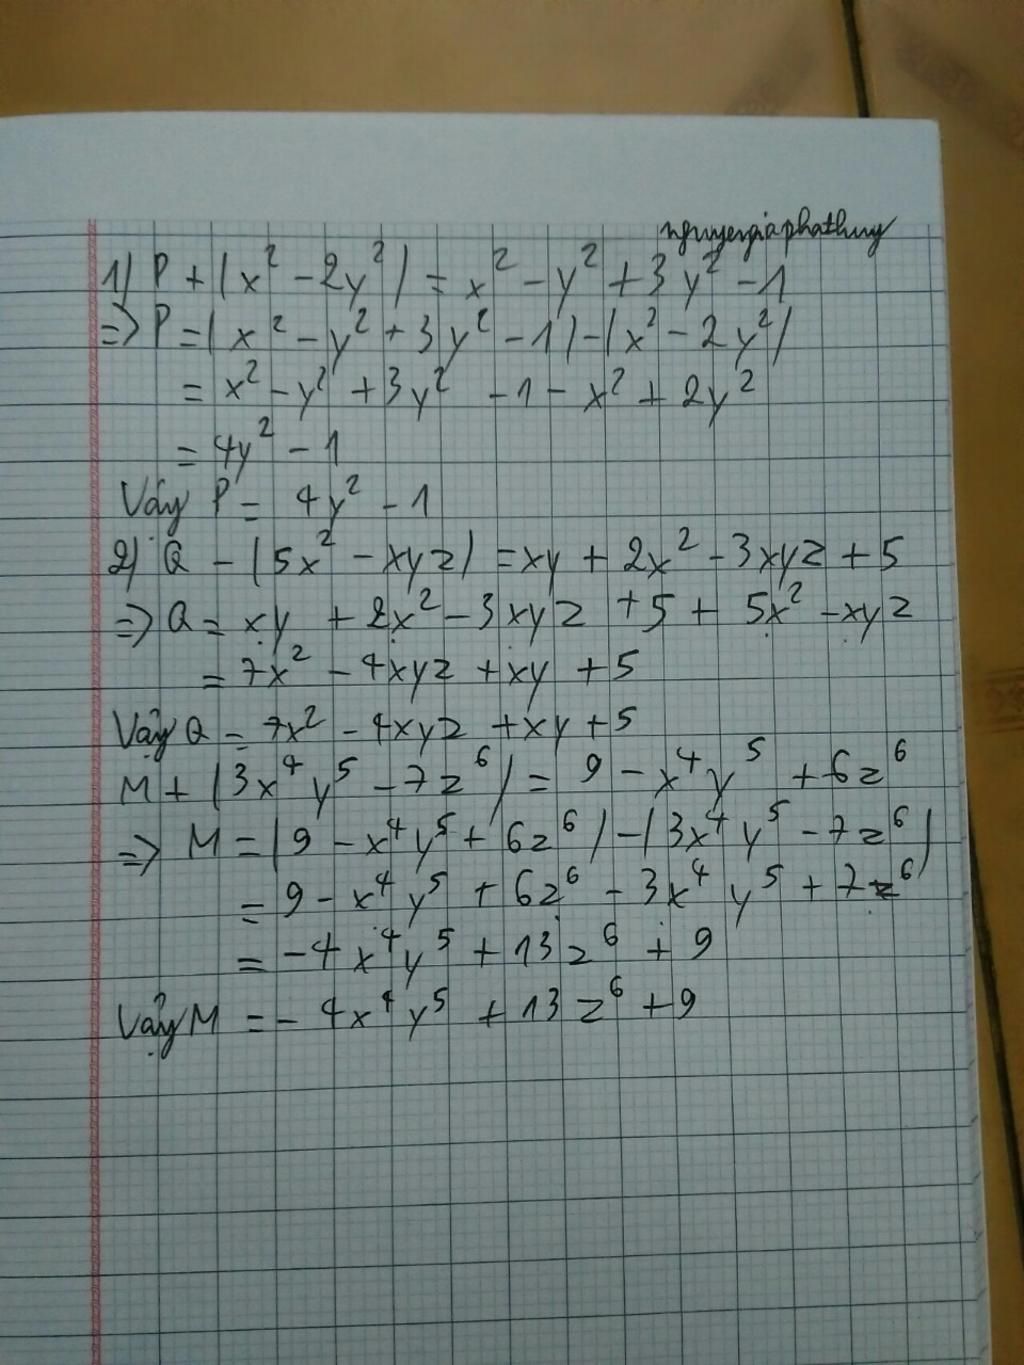 nguyengiaphathuy
1) P + (x² - 2y²) = x² - y² + 3y² - 1
=> P = (x² - y² + 3y² - 1) - (x² - 2y²)
= x² - y² + 3y² - 1 - x² + 2y²
= 4y² - 1
Vậy P = 4y² - 1
2) Q - (5x² - xyz) = xy + 2x² - 3xyz + 5
=> Q = xy + 2x² - 3xyz + 5 + 5x² - xyz
= 7x² - 4xyz + xy + 5
Vậy Q = 7x² - 4xyz + xy + 5
M + (3x⁴y⁵ - 7z⁶) = 9 - x⁴y⁵ + 6z⁶
=> M = (9 - x⁴y⁵ + 6z⁶) - (3x⁴y⁵ - 7z⁶)
= 9 - x⁴y⁵ + 6z⁶ - 3x⁴y⁵ + 7z⁶
= -4x⁴y⁵ + 13z⁶ + 9
Vậy M = -4x⁴y⁵ + 13z⁶ + 9